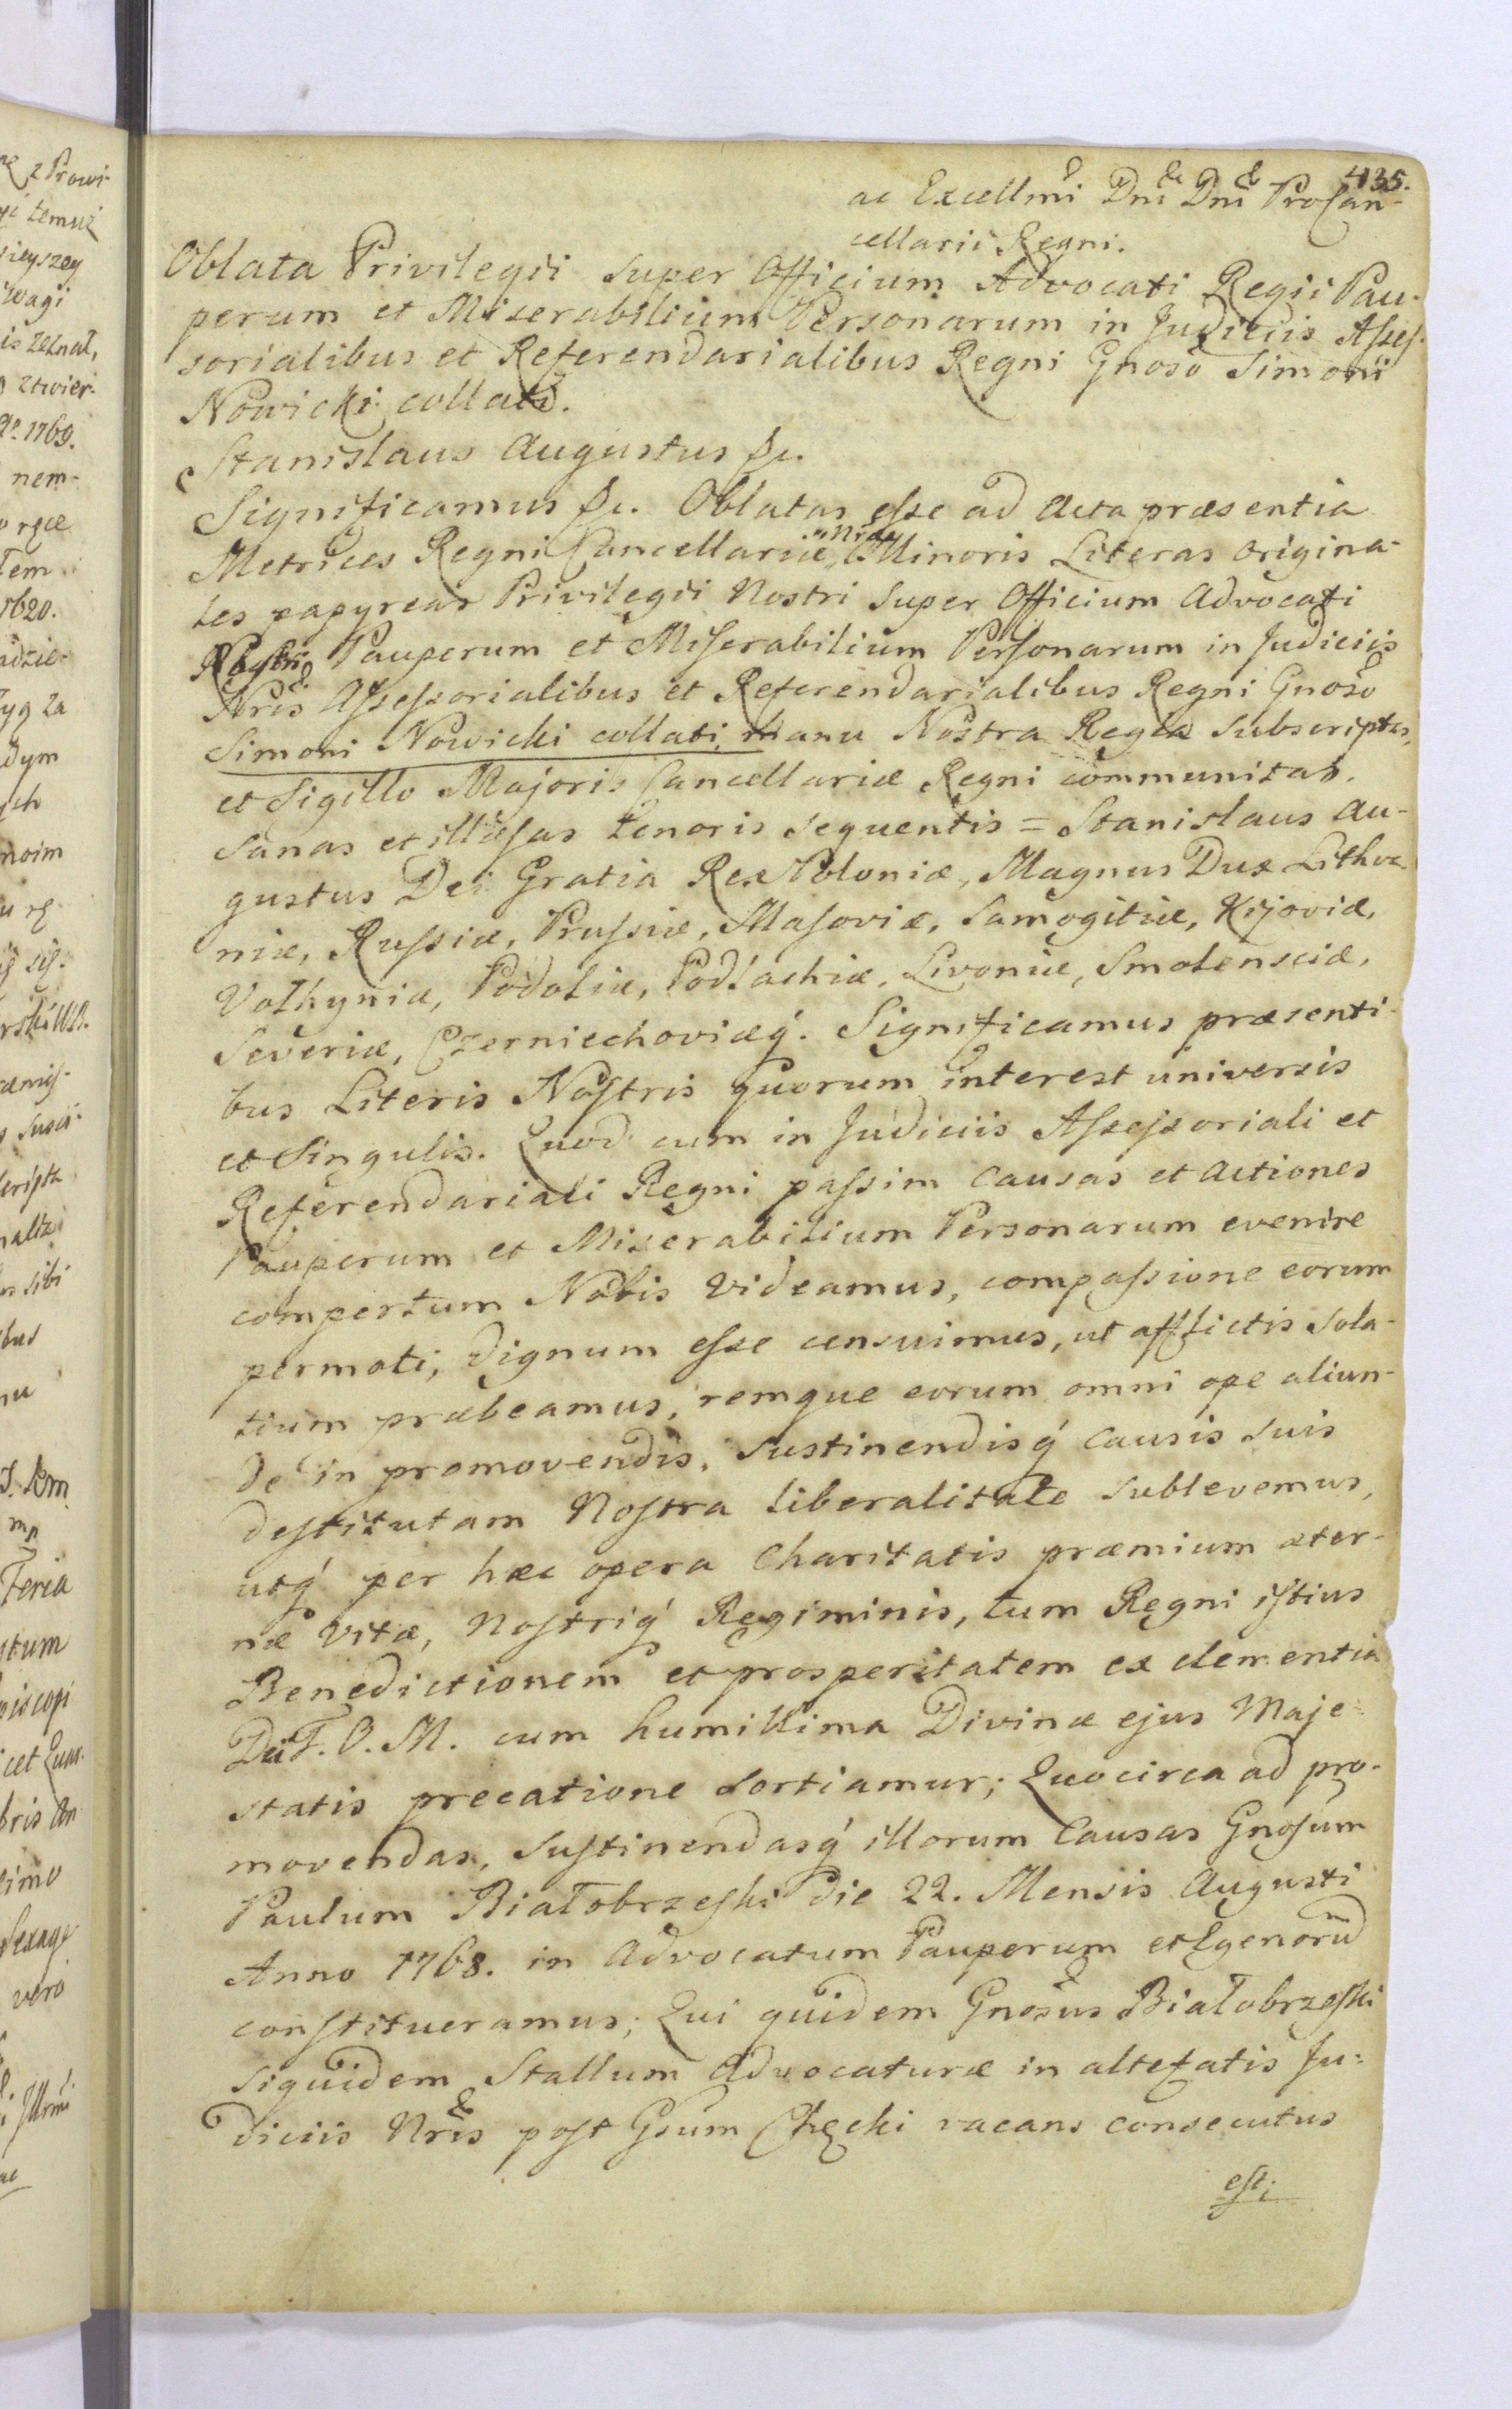 435.
ac Excellmi Dni Dni ProCan-
cellarii Regni.
Oblata Privilegii super Officium Advocati Regii Pau-
perum et Miserabilium Personarum in Judiciis Asses-
sorialibus et Referendarialibus Regni Gnoso Simoni
Nowicki collati.
Stanislaus Augustus &c.
Significamus &c. Oblatas esse ad Acta præsentia
Metrices Regni Cancellariæ Nræ Minoris Literas origina-
les papyreas Privilegii Nostri super Officium Advocati
Pauperum et Miserabilium Personarum in Judiciis
Nris Assessorialibus et Referendarialibus Regni Gnoso
Simoni Nowicki collati, manu Nostra Regia subscriptas,
et Sigillo Majoris Cancellariæ Regni communitas.
Sanas et illæsas tenoris sequentis = Stanislaus Au-
gustus Dei Gratia Rex Poloniæ, Magnus Dux Lithva
niæ, Russiæ, Prussiæ, Masoviæ, Samogitiæ, Kijoviæ,
Volhyniæ, Podoliæ, Podlachiæ, Livoniæ, Smolensciæ,
Severiæ, Czerniechoviæq́. Significamus præsenti-
bus Literis Nostris quorum interest universis
et singulis. Quod cum in Judiciis Assessoriali et
Referendariali Regni passim Causas et Actiones
Pauperum et Miserabilium Personarum evenire
compertum Nobis videamus, compassione eorum
permoti, dignum esse censuimus, ut afflictis sola-
tium præbeamus, remque eorum omni ope aliun-
de in promovendis, sustinendisq́ causis suis
destitutam Nostra liberalitate sublevemus,
utq́ per hæc opera Charitatis præmium æter-
næ Vitæ, Nostriq́ Regiminis, tum Regni istius
Benedictionem et prosperitatem ex clementia
Dei T. O. M. cum humillima Divinæ ejus Maje-
statis precatione sortiamur; Quocirca ad pro-
movendas, sustinendasq́ illorum Causas Gnosum
Paulum Białobrzeski die 22. Mensis Augusti
Anno 1768. in Advocatum Pauperum et Egenorum
constitueramus; Qui quidem Gnosus Białobrzeski
siquidem Stallum Advocaturæ in altefatis Ju-
diciis Nris post Gsum Chęcki vacans consecutus
est;